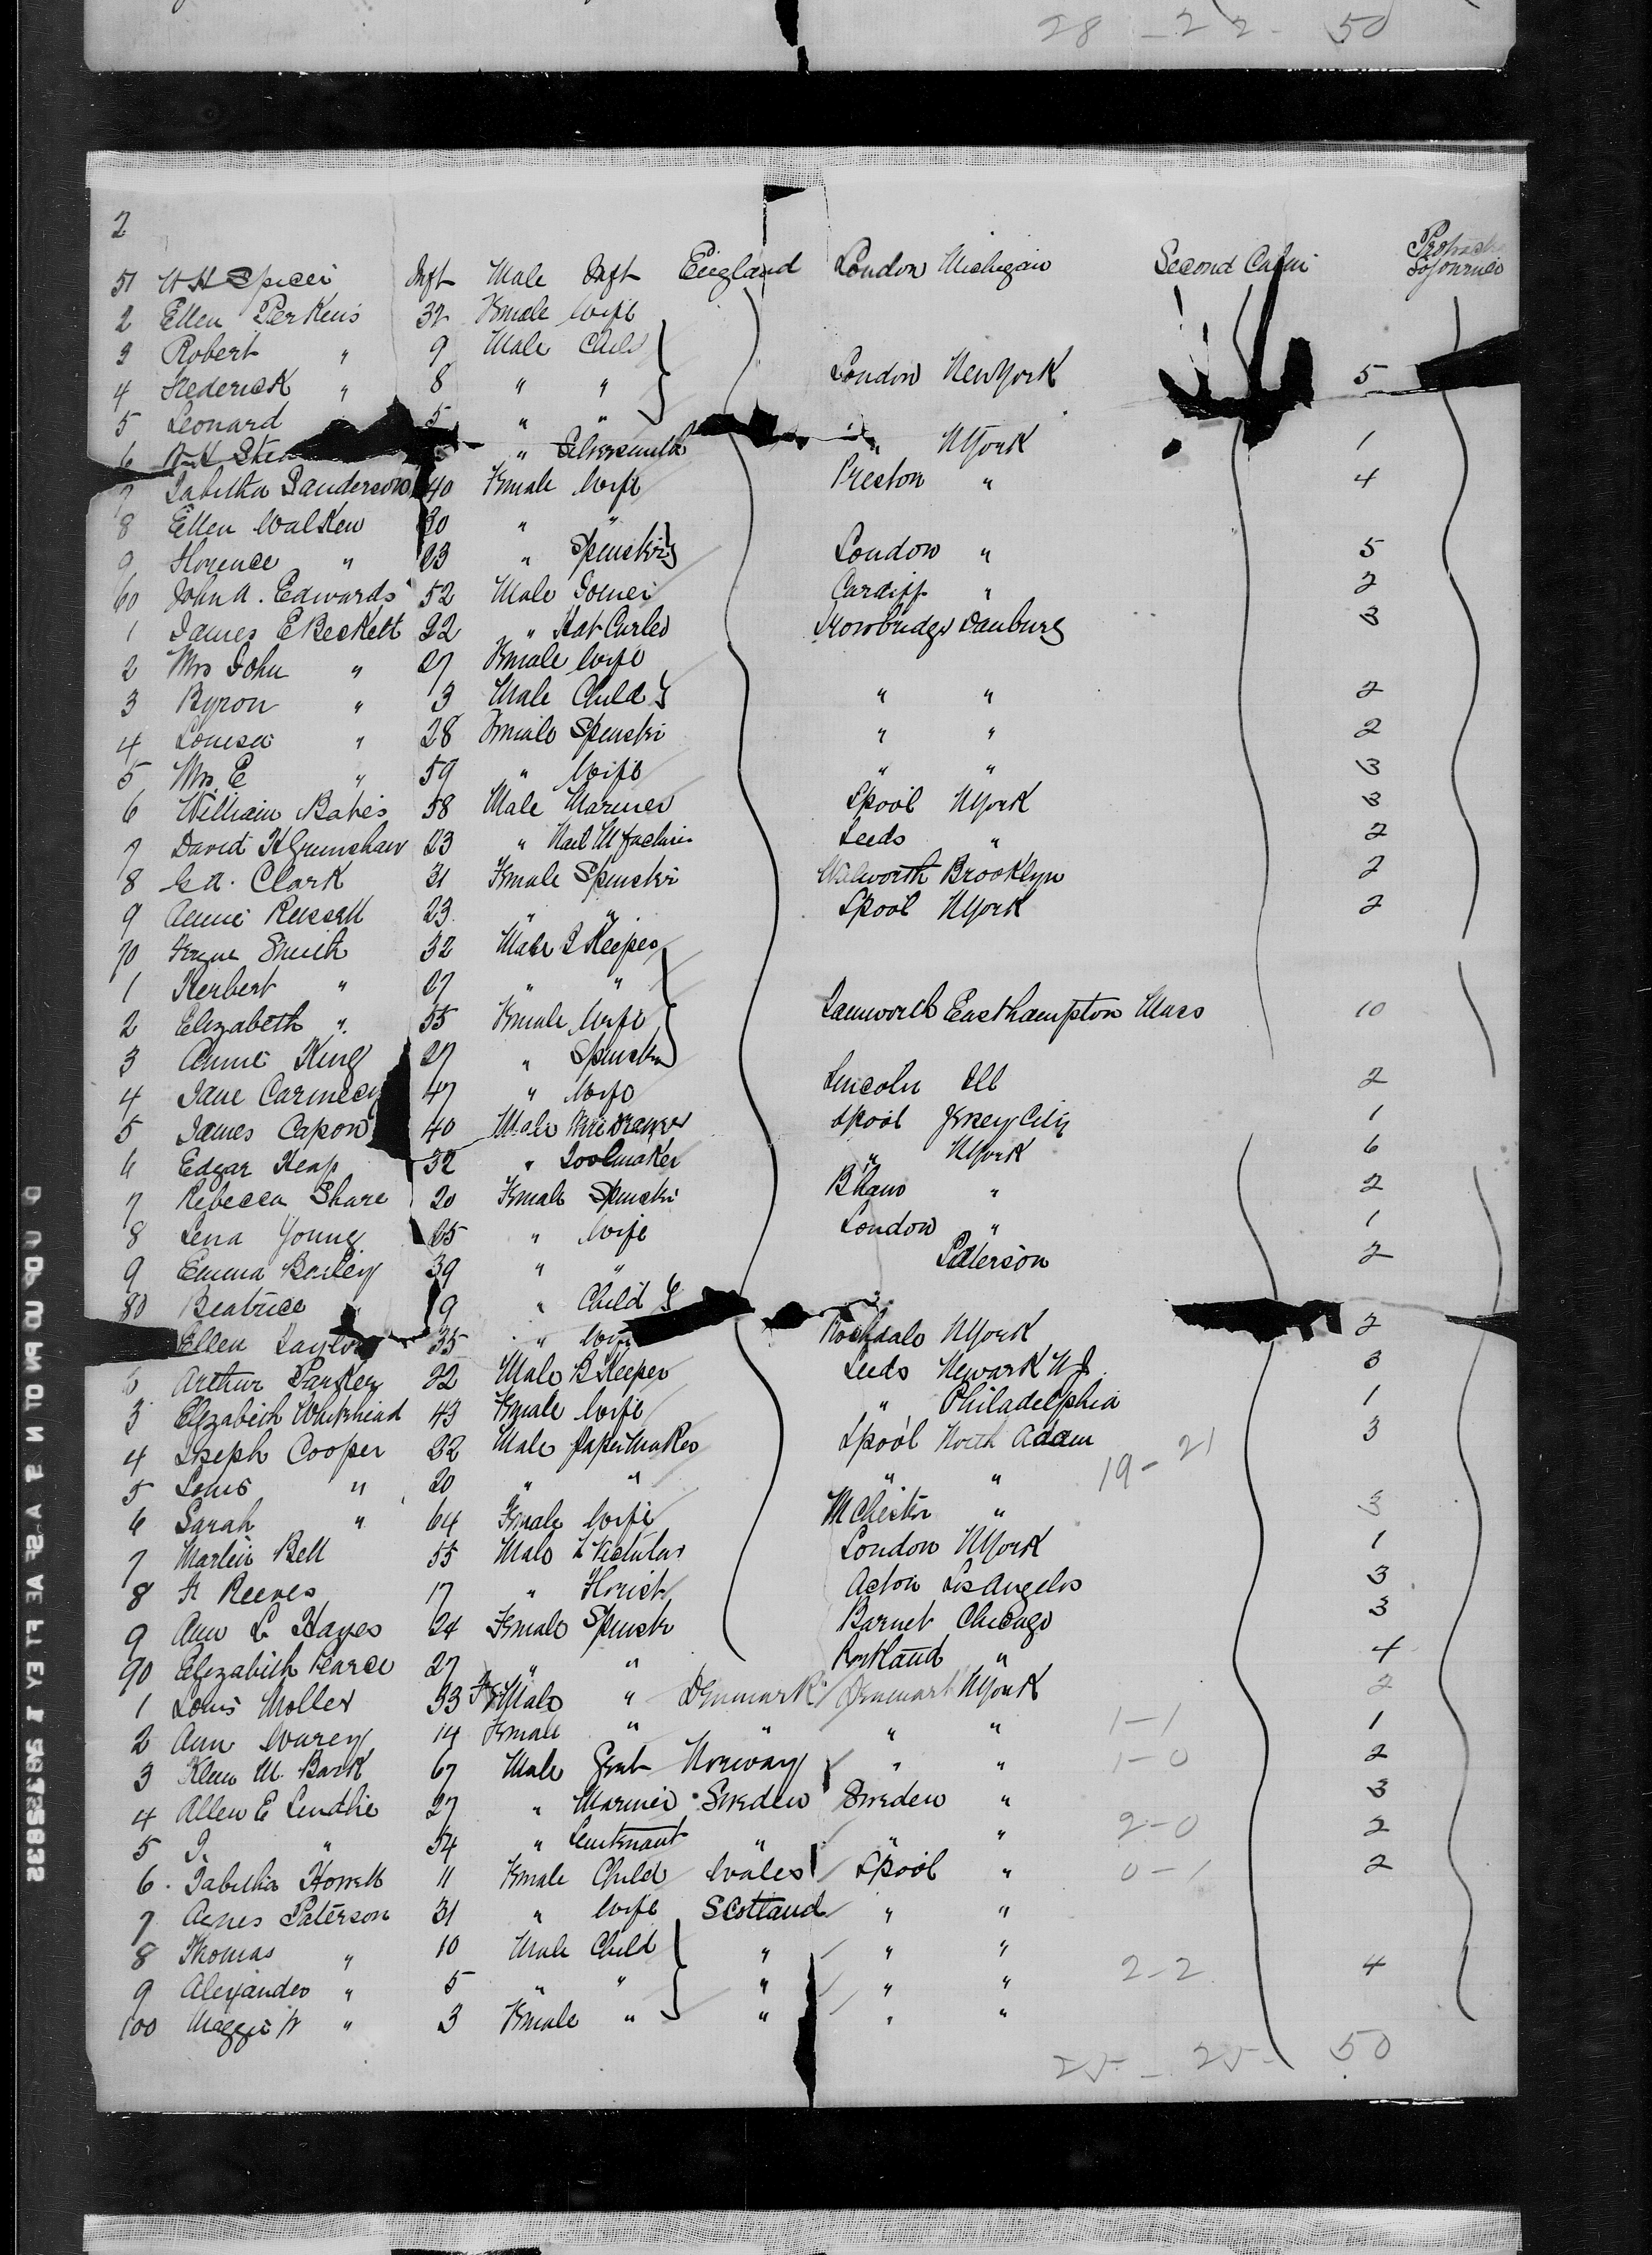 28 - 22 - 50
2
51 W H Spicer Inft Male Inft England London Michigan Second Cabin Protracted Sojourner
2 Ellen Perkins 32 Female Wife
3 Robert " 9 Male Child
4 Frederick " 8 " " London New York 5
5 Leonard 5 " "
6 " Silversmith " N York 1
7 Tabitha Sanderson 40 Female Wife Preston " 4
8 Ellen Walken 30 " "
9 Florence " 23 " Spinster London " 5
60 John A. Edwards 52 Male Joiner Cardiff " 2
1 James E Beckett 22 " Hat Curler Trowbridge Danbury 3
2 Mrs John " 27 Female Wife
3 Byron " 3 Male Child " " 2
4 Louisa " 28 Female Spinster " " 2
5 Mrs E " 59 " Wife " " 3
6 William Bates 58 Male Mariner Lpool N York 3
7 David H Grimshaw 23 " Nail Mfacturer Leeds " 2
8 G A. Clark 31 Female Spinster Walworth Brooklyn 2
9 Annie Russell 23 " " Lpool N York 2
70 Smith 32 Male S Keeper
1 Herbert " 27 " "
2 Elizabeth " 55 Female Wife Tamworth Easthampton Mass 10
3 Annie King 27 " Spinster
4 Jane 47 " Wife Lincoln Ill 2
5 James Capon 40 Male Wire Drawer Lpool Jersey City 1
6 Edgar Heap 32 " Toolmaker " N York 6
7 Rebecca Share 20 Female Spinster B'ham " 2
8 Lena Young 25 " Wife London " 1
9 Emma Bailey 39 " " Paterson 2
80 Beatrice " 9 " Child
Ellen Taylor 35 " Wife Rochdale N York 2
Arthur Parker 22 Male B Keeper Leeds Newark N J. 3
3 Elizabeth Whitehead 43 Female Wife " Philadelphia 1
4 Joseph Cooper 22 Male Paper Maker Lpool North Adam 3
19 - 21
5 Louis " 20 " " " "
6 Sarah " 64 Female Wife M Chester " 3
7 Martin Bell 55 Male L Victular London N York 1
8 F Reeves 17 " Florist Acton Los Angelos 3
9 Ann L Hayes 24 Female Spinster Barnet Chicago 3
90 Elizabeth Pearce 27 " " " 4
1 Louis Moller 33 Male " Denmark Denmark N York 2
2 Ann 14 Female " " " " 1-1 1
3 M. Bark 67 Male Gent Norway " " 1-0 2
4 Allen E Lindhe 27 " Mariner Sweden Sweden " 3
5 " 54 " Lieutenant " " " 2-0 2
6 Tabitha Howell 11 Female Child Wales Lpool " 0-1 2
7 Agnes Paterson 31 " Wife Scotland " "
8 Thomas " 10 Male Child " " "
9 Alexander " 5 " " " " " 2-2 4
100 Maggie W " 3 Female " " " "
25 - 25 - 50